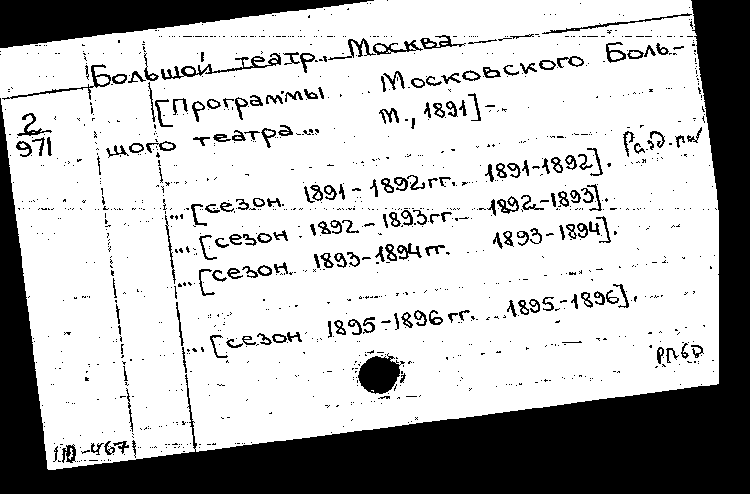 Большой театр. Москва
[Программы Московского Боль-
2
971
шого театра... М., 1891]-
Разд. паг
...[сезон 1891-1892гг. 1891-1892].
...[сезон 1892-1893гг. 1892-1893].
...[сезон 1893-1894гг. 1893-1894].
...[сезон 1895-1896гг. 1895-1896].
РПБО
-467